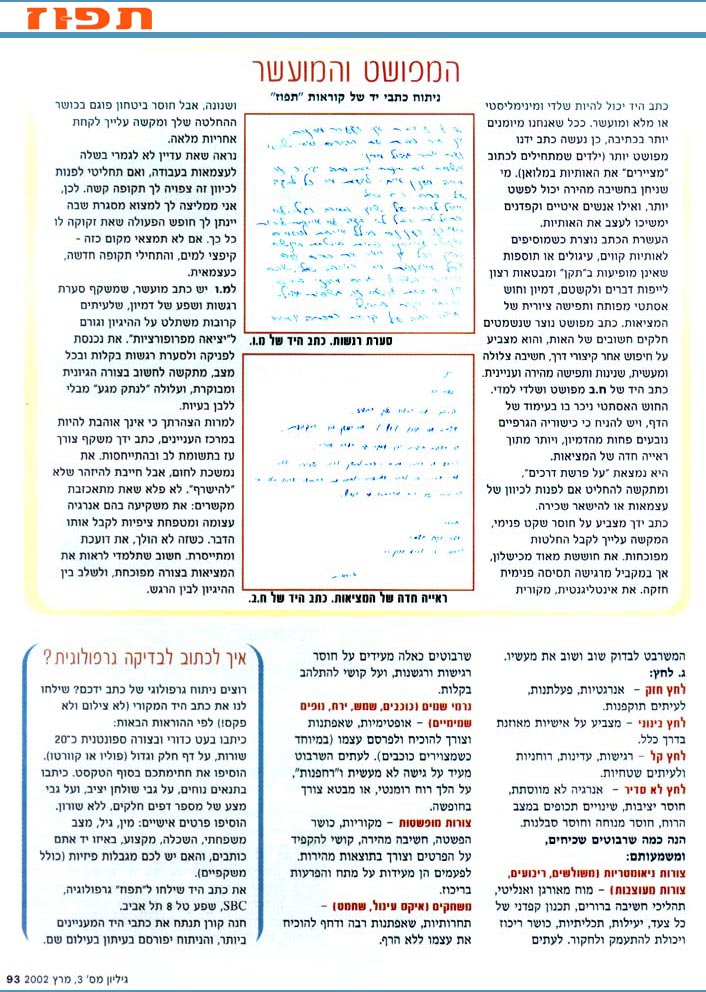 תפוז
המפושט והמועשר
ניתוח כתבי יד של קוראות "תפוז"
כתב היד יכול להיות שלדי ומינימליסטי
או מלא ומועשר. ככל שאנחנו מיומנים
יותר בכתיבה, כן נעשה כתב ידנו
מפושט יותר (ילדים שמתחילים לכתוב
"מציירים" את האותיות במלואן). מי
שניחן בחשיבה מהירה יכול לפשט
יותר, ואילו אנשים איטיים וקפדנים
ימשיכו לעצב את האותיות.
העשרת הכתב נוצרת כשמוסיפים
לאותיות קווים, עיגולים או תוספות
שאינן מופיעות ב"תקן" ומבטאות רצון
לייפות דברים ולקשטם, דמיון וחוש
אסתטי מפותח ותפישה ציורית של
המציאות. כתב מפושט נוצר שנשמטים
חלקים חשובים של האות, והוא מצביע
על חיפוש אחר קיצורי דרך, חשיבה צלולה
ומעשית, שנינות ותפישה מהירה ועניינית.
כתב היד של ח.ב מפושט ושלדי למדי.
החוש האסתטי ניכר בו בעימוד של
הדף, ויש להניח כי כישוריה הגרפיים
נובעים פחות מהדמיון, ויותר מתוך
ראייה חדה של המציאות.
היא נמצאת "על פרשת דרכים",
ומתקשה להחליט אם לפנות לכיוון של
עצמאות או להישאר שכירה.
כתב ידך מצביע על חוסר שקט פנימי,
המקשה עלייך לקבל החלטות
מפוכחות. את חוששת מאוד מכישלון,
אך במקביל מרגישה תסיסה פנימית
חזקה. את אינטליגנטית, מקורית
סערת רגשות. כתב היד של מ.ו.
ראייה חדה של המציאות. כתב היד של ח.ב.
ושנונה, אבל חוסר ביטחון פוגם בכושר
ההחלטה שלך ומקשה עלייך לקחת
אחריות מלאה.
נראה שאת עדיין לא לגמרי בשלה
לעצמאות בעבודה, ואם תחליטי לפנות
לכיוון זה צפויה לך תקופה קשה. לכן,
אני ממליצה לך למצוא מסגרת שבה
יינתן לך חופש הפעולה שאת זקוקה לו
כל כך. אם לא תמצאי מקום כזה -
קיפצי למים, והתחילי תקופה חדשה,
כעצמאית.
למ.ו יש כתב מועשר, שמשקף סערת
רגשות ושפע של דמיון, שלעיתים
קרובות משתלט על ההיגיון וגורם
ל"יציאה מפרופורציות". את נכנסת
לפניקה ולסערת רגשות בקלות ובכל
מצב, מתקשה לחשוב בצורה הגיונית
ומבוקרת, ועלולה "לנתק מגע" מבלי
ללבן בעיות.
למרות הצהרתך כי אינך אוהבת להיות
במרכז העניינים, כתב ידך משקף צורך
עז בתשומת לב ובהתייחסות. את
נמשכת לחום, אבל חייבת להיזהר שלא
"להישרף". לא פלא שאת מתאכזבת
מקשרים: את משקיעה בהם אנרגיה
עצומה ומטפחת ציפיות לקבל אותו
הדבר. כשזה לא הולך, את דועכת
ומתייסרת. חשוב שתלמדי לראות את
המציאות בצורה מפוכחת, ולשלב בין
ההיגיון לבין הרגש.
המשרבט לבדוק שוב ושוב את מעשיו.
ג. לחץ:
לחץ חזק – אנרגטיות, פעלתנות,
לעיתים תוקפנות.
לחץ בינוני – מצביע על אישיות מאוזנת
בדרך כלל.
לחץ קל – רגישות, עדינות, רוחניות
ולעיתים שטחיות.
לחץ לא סדיר – אנרגיה לא מווסתת,
חוסר יציבות, שינויים תכופים במצב
הרוח, חוסר מנוחה וחוסר סבלנות.
הנה כמה שרבוטים שכיחים,
ומשמעותם:
צורות גיאומטריות (משולשים, ריבועים,
צורות מעוצבות) – מוח מאורגן ואנליטי,
תהליכי חשיבה ברורים, תכנון קפדני של
כל צעד, יעילות, תכליתיות, כושר ריכוז
ויכולת להתעמק ולחקור. לעתים
שרבוטים כאלה מעידים על חוסר
רגישות ורגשנות, ועל קושי להתלהב
בקלות.
גרמי שמים (כוכבים, שמש, ירח, גופים
שמימיים) – אופטימיות, שאפתנות
וצורך להוכיח ולפרסם עצמו (במיוחד
כשמצוירים כוכבים). לעתים השרבוט
מעיד על גישה לא מעשית ו"רחפנות",
על הלך רוח רומנטי, או מבטא צורך
בחופשה.
צורות מופשטות – מקוריות, כושר
הפשטה, חשיבה מהירה, קושי להקפיד
על הפרטים וצורך בתוצאות מהירות.
לפעמים הן מעידות על מתח והפרעות
בריכוז.
משחקים (איקס עיגול, שחמט) –
תחרותיות, שאפתנות רבה ודחף להוכיח
את עצמו ללא הרף.
איך לכתוב לבדיקה גרפולוגית?
רוצים ניתוח גרפולוגי של כתב ידכם? שילחו
לנו את כתב היד המקורי (לא צילום ולא
פקס!) לפי ההוראות הבאות:
כיתבו בעט כדורי ובצורה ספונטנית כ־20
שורות, על דף חלק וגדול (פוליו או קוורטו).
הוסיפו את חתימתכם בסוף הטקסט. כיתבו
בתנאים נוחים, על גבי שולחן יציב, ועל גבי
מצע של מספר דפים חלקים, ללא שורות.
הוסיפו פרטים אישיים: מין, גיל, מצב
משפחתי, השכלה, מקצוע, באיזו יד אתם
כותבים, והאם יש לכם מגבלות פיזיות (כולל
משקפיים).
את כתב היד שילחו ל"תפוז" גרפולוגיה,
SBC, שפע טל 8 תל אביב.
חנה קורן תנתח את כתבי היד המעניינים
ביותר, והניתוח יפורסם בעיתון בעילום שם.
גיליון מס' 3, מרץ 2002 93